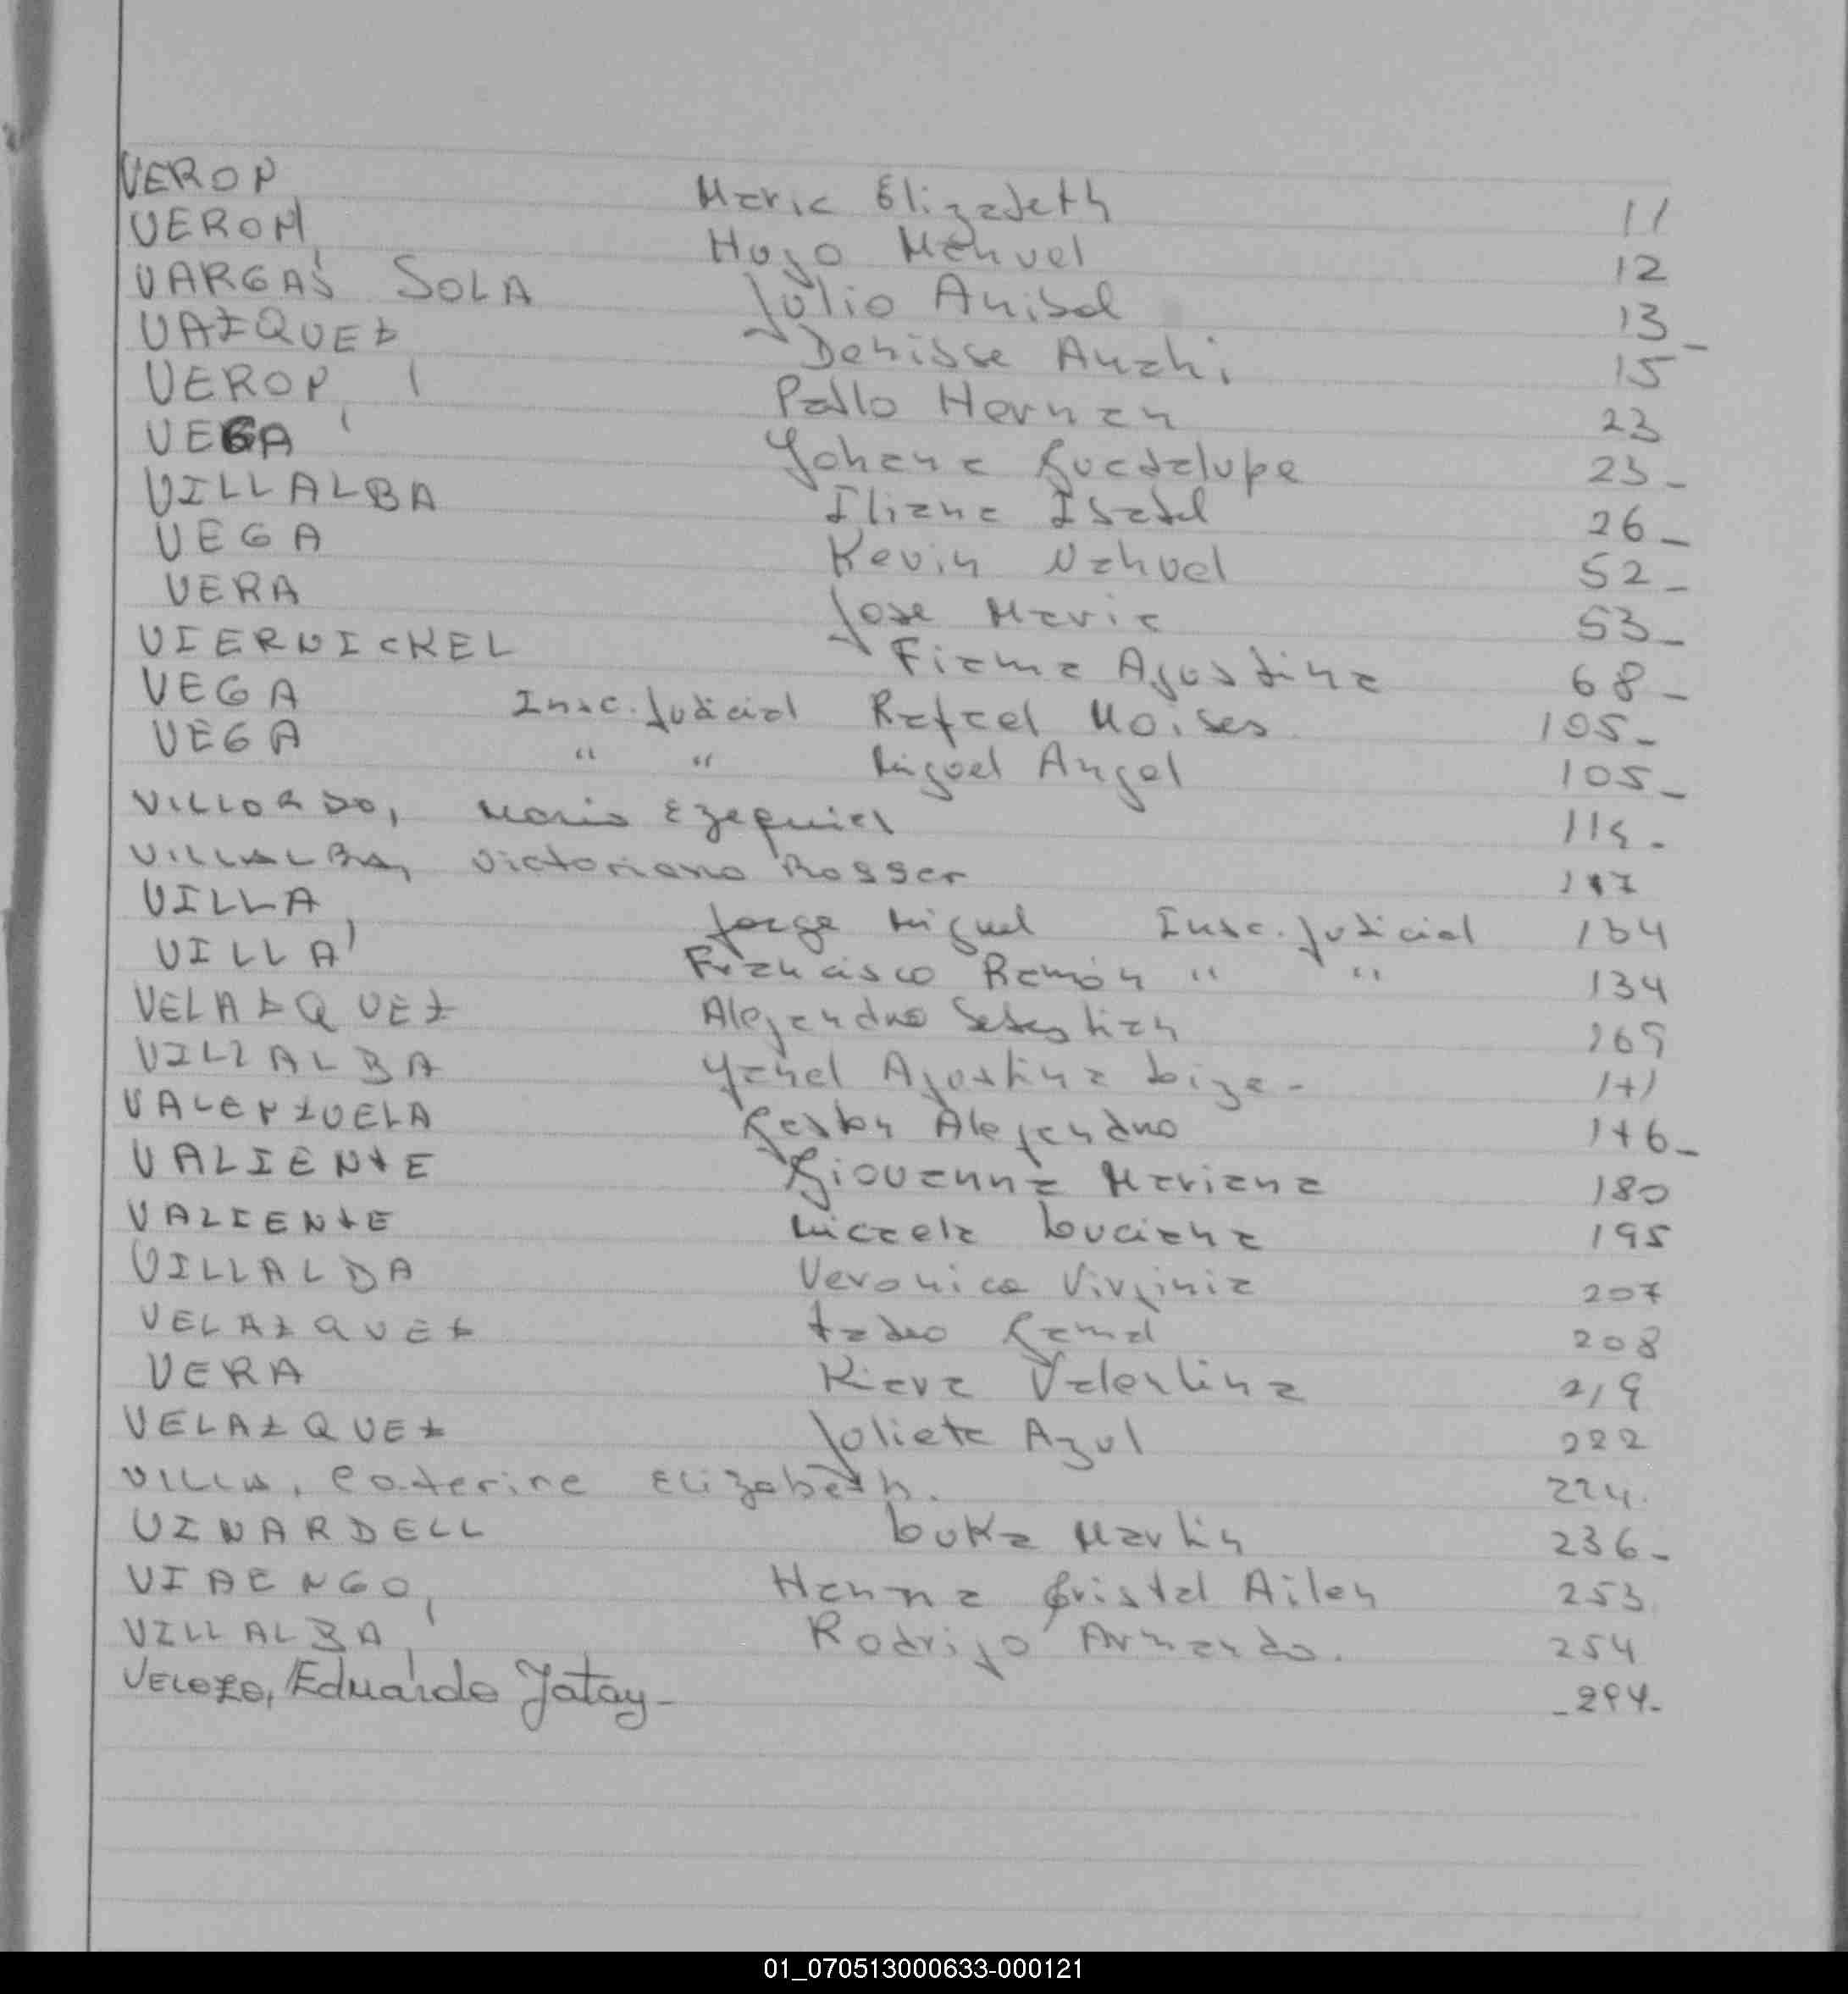 VERON Maria Elizabeth 11
VERON, Hugo Manuel 12
VARGAS SOLA Julio Anibal 13_
VAZQUEZ Denisse Anahi 15
VERON, Pablo Hernan 23
VEGA Yohana Guadalupe 25_
VILLALBA Iliana Isabel 26_
VEGA Kevin Nahuel 52_
VERA Jose Maria 53_
VIERNICKEL Fiama Agostina 68_
VEGA Insc. Judicial Rafael Moises 105_
VEGA " " Miguel Angel 105_
VILLORDO, Mario Ezequiel 114.
VILLALBA, Victoriano Rosger 117
VILLA, Jorge Miguel Insc. Judicial 134
VILLA Francisco Ramón " " 134
VELAZQUEZ Alejandro Sebastian 169
VILLALBA Yanel Agostina Liza- 171
VALENZUELA Gaston Alejandro 176_
VALIENTE Giovanna Mariana 180
VALIENTE Micaela Luciana 195
VILLALBA Veronica Virginia 207
VELAZQUEZ Tadeo Gamal 208
VERA Kiara Valentina 219
VELAZQUEZ Julieta Azul 222
VILLA, Caterine Elizabeth. 224.
VINARDELL Luka Martin 236_
VIAENGO, Hanna Cristal Ailen 253
VILLALBA, Rodrigo Armando. 254
VELOZO, Eduardo Jatay- _294-
01_070513000633-000121